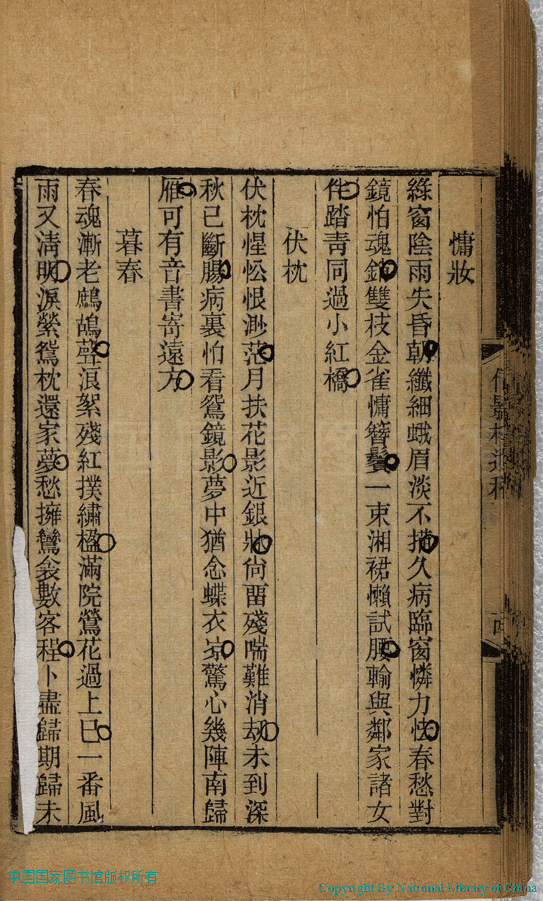 慵妝
綠窗陰雨失昏朝纖細蛾眉淡不描久病臨窗憐力怯春愁對
鏡怕魂銷雙枝金雀慵簪鬢一束湘裙懶試腰輸與鄰家諸女
伴踏靑同過小紅橋
伏枕
伏枕惺忪恨渺茫落月扶花影近銀牀尙畱殘喘難消刼未到深
秋已斷腸病裏怕看鴛鏡影夢中猶念蝶衣凉驚心幾陣南歸
雁可有音書寄遠方
暮春
春魂漸老鷓鴣聲浪絮殘紅撲繡楹滿院鶯花過上巳一番風
雨又淸明淚縈鴛枕還家夢愁擁鸞衾數客程卜盡歸期歸未
中国国家图书馆版权所有
Copyright By National Library of China